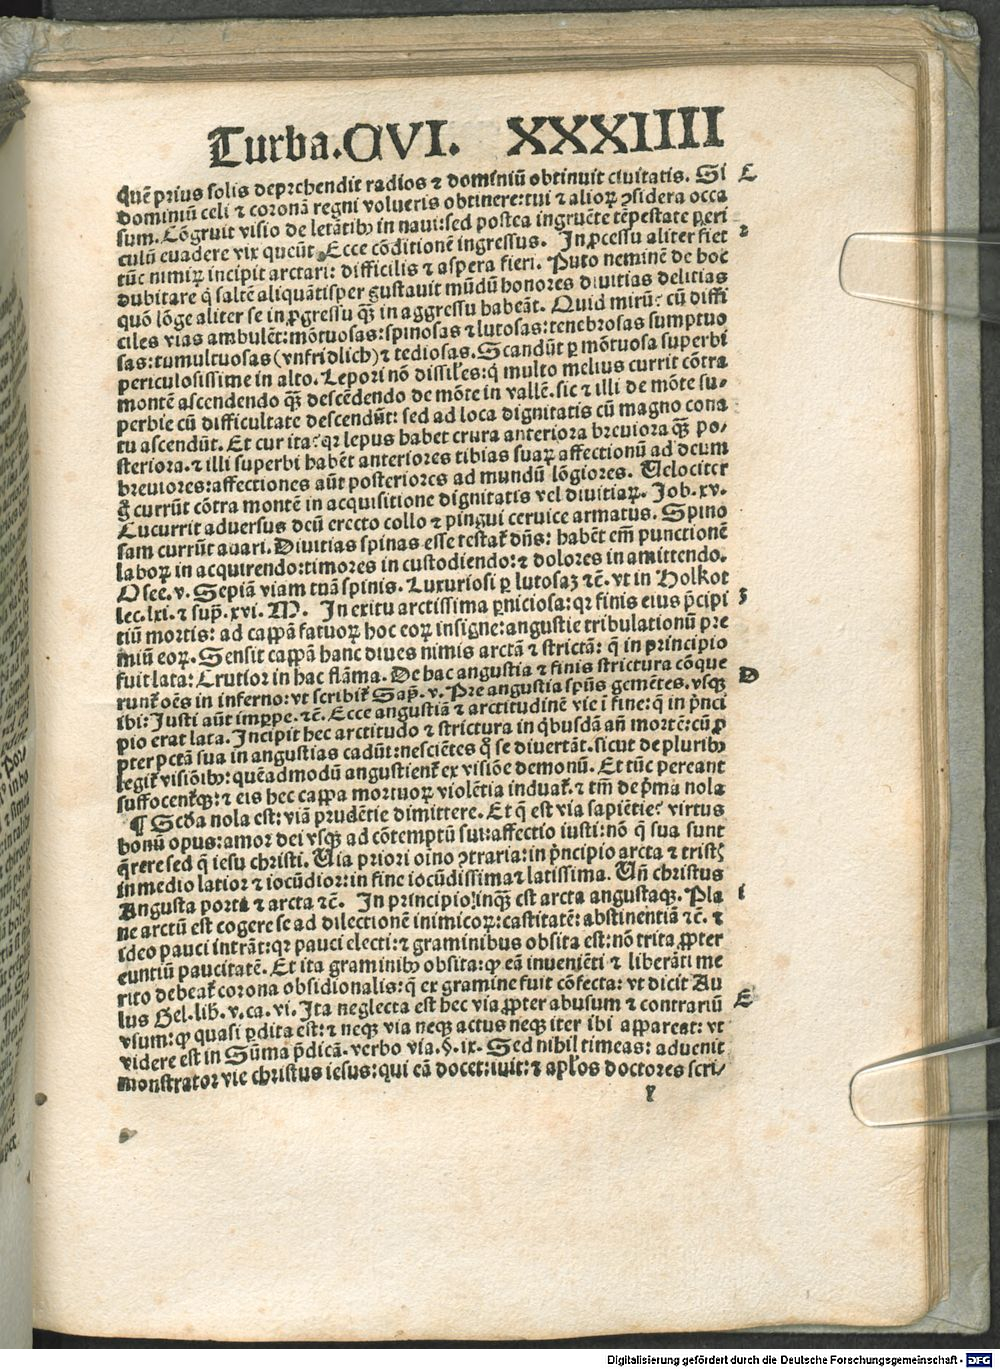 Turba.CVI. XXXIIII
Quē prius solis deprehendit radios ⁊ dominiū obtinuit civitatis. Si
dominiū celi ⁊ coronā regni volueris obtinere:tui ⁊ alioꝝ ꝯsidera occa
sum. Cōgruit visio de letātibꝰ in navi:sed postea ingruēte tēpestate ꝑeri
culū evadere vix queūt. Ecce cōditionē ingressus. In ꝓcessu aliter fiet
tūc nimiꝝ incipit arctari: difficilis ⁊ aspera fieri. Puto neminē de hoc
dubitare q̇ saltē aliquātisper gustavit mūdū honores divitias delitias
quō lōge aliter se in ꝓgressu qꝫ in aggressu habeāt. Quid mirū: cū diffi
ciles vias ambulēt:mōtuosas:spinosas ⁊ lutosas:tenebrosas sumptuo
sas:tumultuosas(vnfridlich)⁊ tediosas. Scandūt ꝑ mōtuosa superbi
periculosissime in alto. Lepori nō dissiles:q̇ multo melius currit cōtra
montē ascendendo qꝫ descēdendo de mōte in vallē. sic ⁊ illi de mōte su-
perbie cū difficultate descendūt: sed ad loca dignitatis cū magno cona
tu ascendūt. Et cur ita:qr lepus habet crura anteriora breviora qꝫ po-
steriora.⁊ illi superbi habēt anteriores tibias suaꝝ affectionū ad deum
breviores:affectiones aūt posteriores ad mundū lōgiores. Velociter
g̊ currūt cōtra montē in acquisitione dignitatis vel divitiaꝝ. Job.xv.
Cucurrit adversus deū erecto collo ⁊ pingui cervice armatus. Spino
sam currūt avari. Divitias spinas esse testat̄ dn̄s: habēt em̄ punctionē
laboꝝ in acquirendo:timores in custodiendo:⁊ dolores in amittendo.
Osee.v. Sepiā viam tuā spinis. Luxuriosi ꝑ lutosaꝫ ⁊c̄. vt in Holkot
lec.lxi.⁊ sup̄.xvi. M. In exitu arctissima ꝑniciosa:qr finis eius p̄cipi
tiū mortis: ad cappā fatuoꝝ hoc eoꝝ insigne:angustie tribulationū pre
miū eoꝝ. Sensit cappā hanc dives nimis arctā ⁊ strictā: q̄ in principio
fuit lata: Crutior in hac flāma. De hac angustia ⁊ finis strictura cōque
runt̄ oēs in inferno:vt scribit̄ Sap̄.v. Pre angustia spūs gemētes.vsqꝫ
ibi: Justi aūt imꝑpe.⁊c̄. Ecce angustiā ⁊ arctitudinē vie ī fine:q̄ in p̄nci
pio erat lata. Incipit hec arctitudo ⁊ strictura in q̇busdā an̄ mortē:cū ꝓ
pter pctā sua in angustias cadūt:nesciētes q̊ se divertāt.sicut de pluribꝰ
legit̄ visiōibꝰ:quēadmodū angustient̄ ex visiōe demonū. Et tūc pereant
suffocent̄qꝫ:⁊ eis hec cappa mortuoꝝ violētia induat̄.⁊ tm̄ de p̄ma nola
¶ Scd̄a nola est: viā prudētie dimittere. Et q̄ est via sapiētie: virtus
bonū opus:amor dei vsqꝫ ad cōtemptū sui:affectio iusti:nō q̄ sua sunt
q̄rere sed q̄ iesu christi. Via priori oīno ꝯtraria:in p̄ncipio arcta ⁊ tristꝭ
in medio latior ⁊ iocūdior:in fine iocūdissima⁊ latissima. Vn̄ christus
Angusta porta ⁊ arcta ⁊c̄. In principio inqꝫ est arcta angustaqꝫ. Pla
ne arctū est cogere se ad dilectionē inimicoꝝ:castitatē: abstinentiā ⁊c̄.⁊
ideo pauci intrāt:qr pauci electi:⁊ graminibus obsita est:nō trita ꝓpter
euntiū paucitatē. Et ita graminibꝰ obsita:qꝙ eā inveniēti ⁊ liberāti me
rito debeat̄ corona obsidionalis:q̄ ex gramine fuit cōfecta: vt dicit Au
lus Gel.lib̄.v.ca.vi. Ita neglecta est hec via ꝓpter abusum ⁊ contrariū
vsum:qꝙ quasi ꝑdita est:⁊ neqꝫ via neqꝫ actus neqꝫ iter ibi appareat: vt
videre est in Sūma p̄dicā. verbo via.§.ix. Sed nihil timeas: advenit
monstrator vie christus iesus:qui eā docet:iuit:⁊ apłos doctores scri-
C
2
3
D
i
E
y
Digitalisierung gefördert durch die Deutsche Forschungsgemeinschaft - DFG